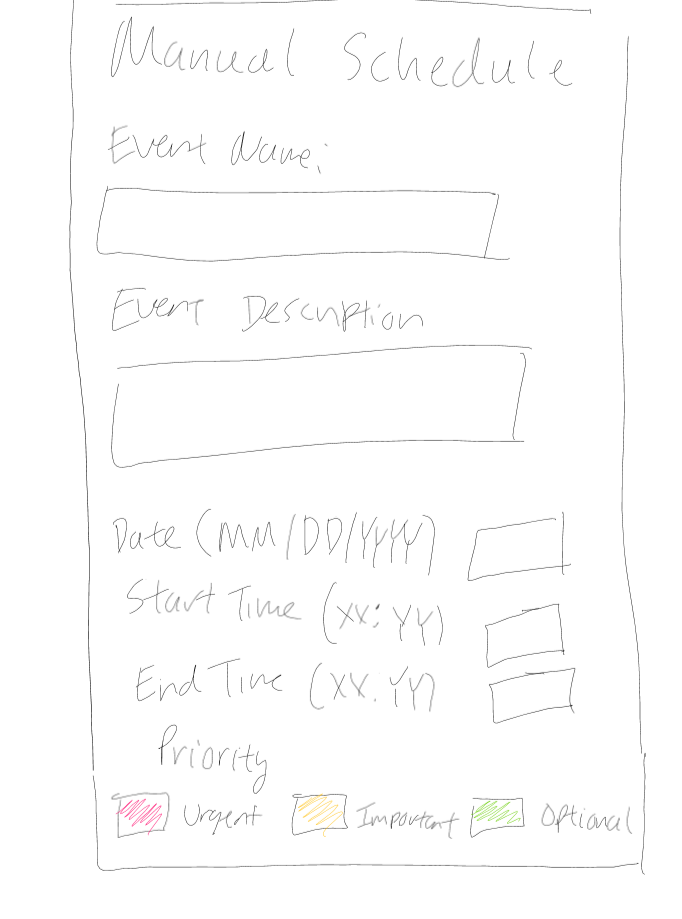 Manual Schedule
Event Name:
Event Description
Date (MM/DD/YYYY)
Start Time (XX:YY)
End Time (XX.YY)
Priority
Urgent Important Optional